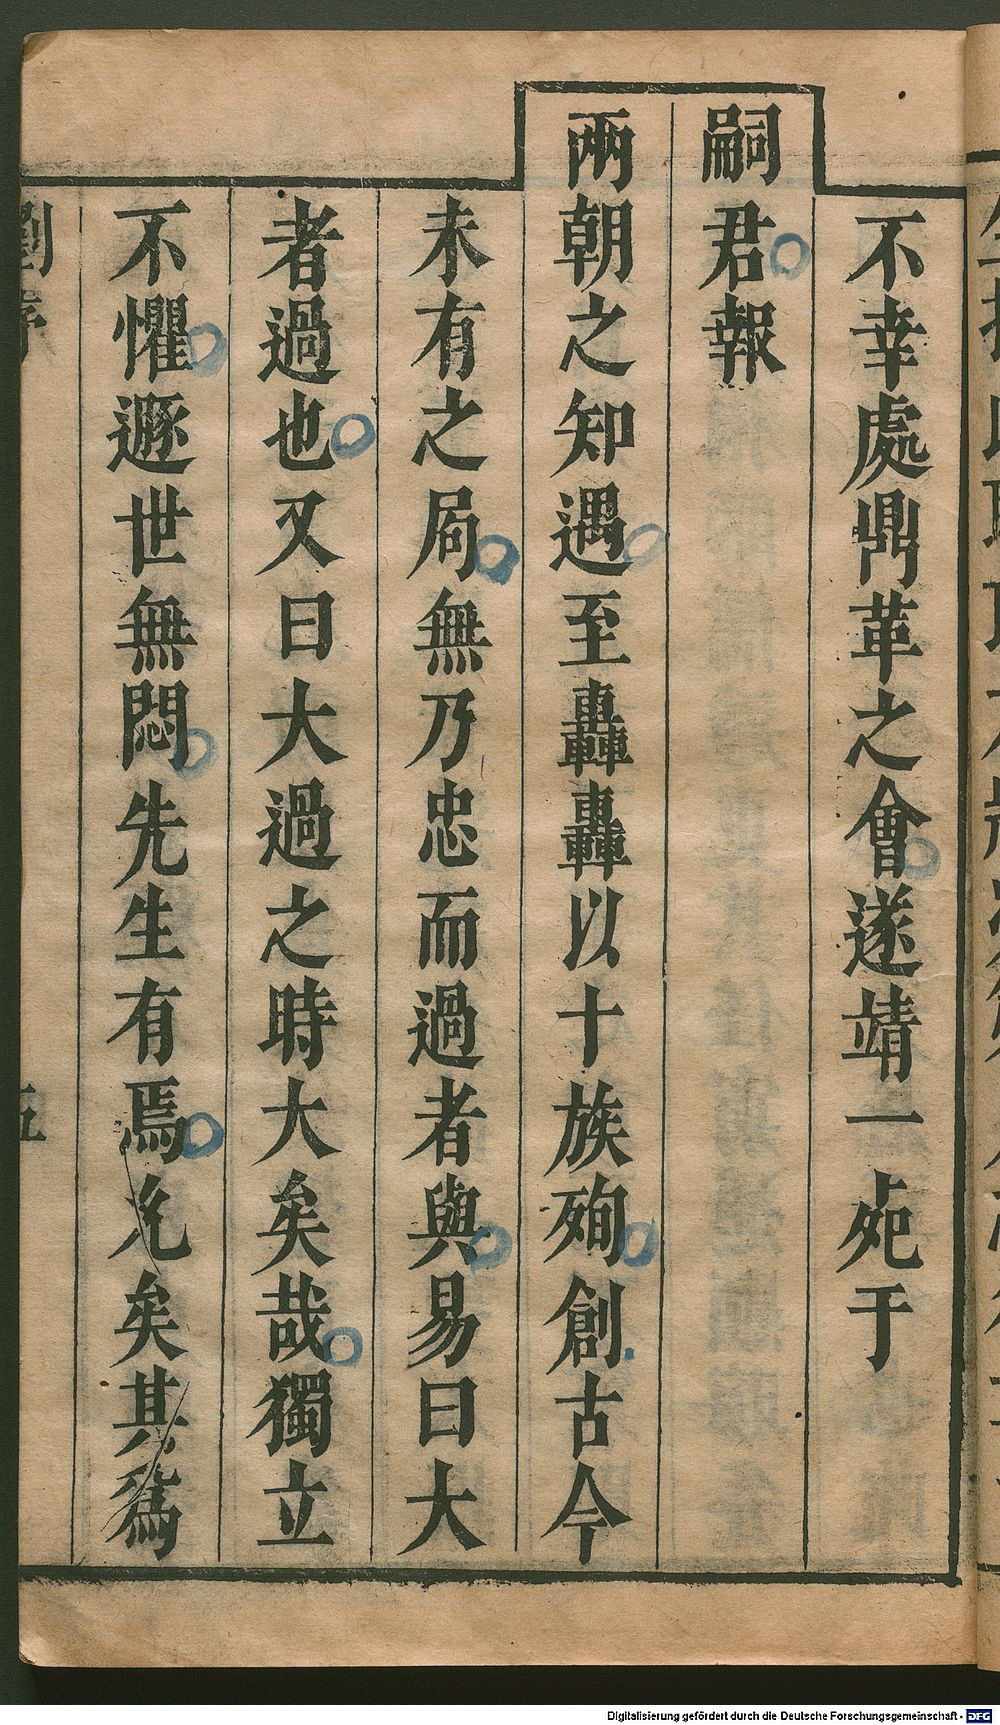 不幸處鼎革之會遂靖一死于
嗣君報
兩朝之知遇至轟轟以十族殉創古今
未有之局無乃忠而過者與易曰大
者過也又曰大過之時大矣哉獨立
不懼遯世無悶先生有焉允矣其爲
劉序
五
Digitalisierung gefördert durch die Deutsche Forschungsgemeinschaft - DFG